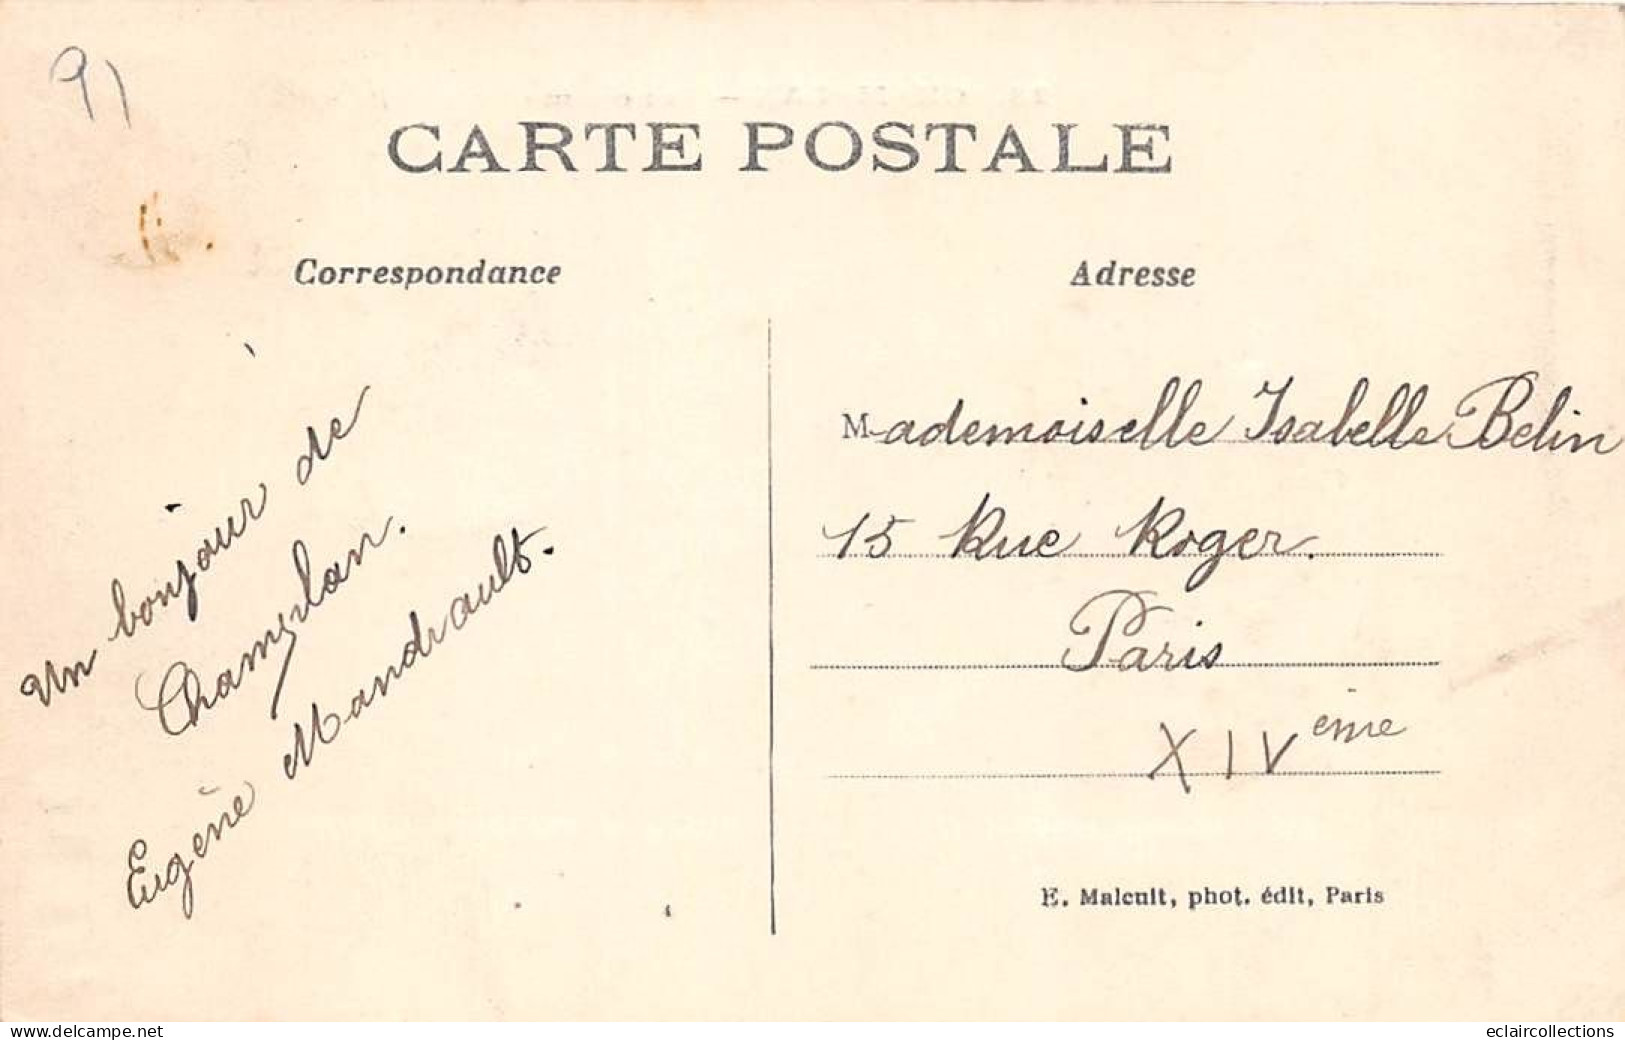 91
CARTE POSTALE
Correspondance
Adresse
Un bonjour de
Champlan.
Eugène Mandrault.
Mademoiselle Isabelle Belin
15 Rue Roger.
Paris
XIVème
E. Malcuit, phot. édit, Paris
www.delcampe.net
eclaircollections